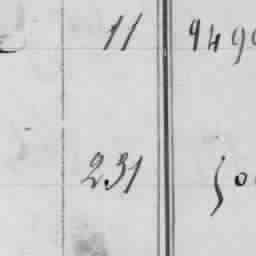 11 949
231 50